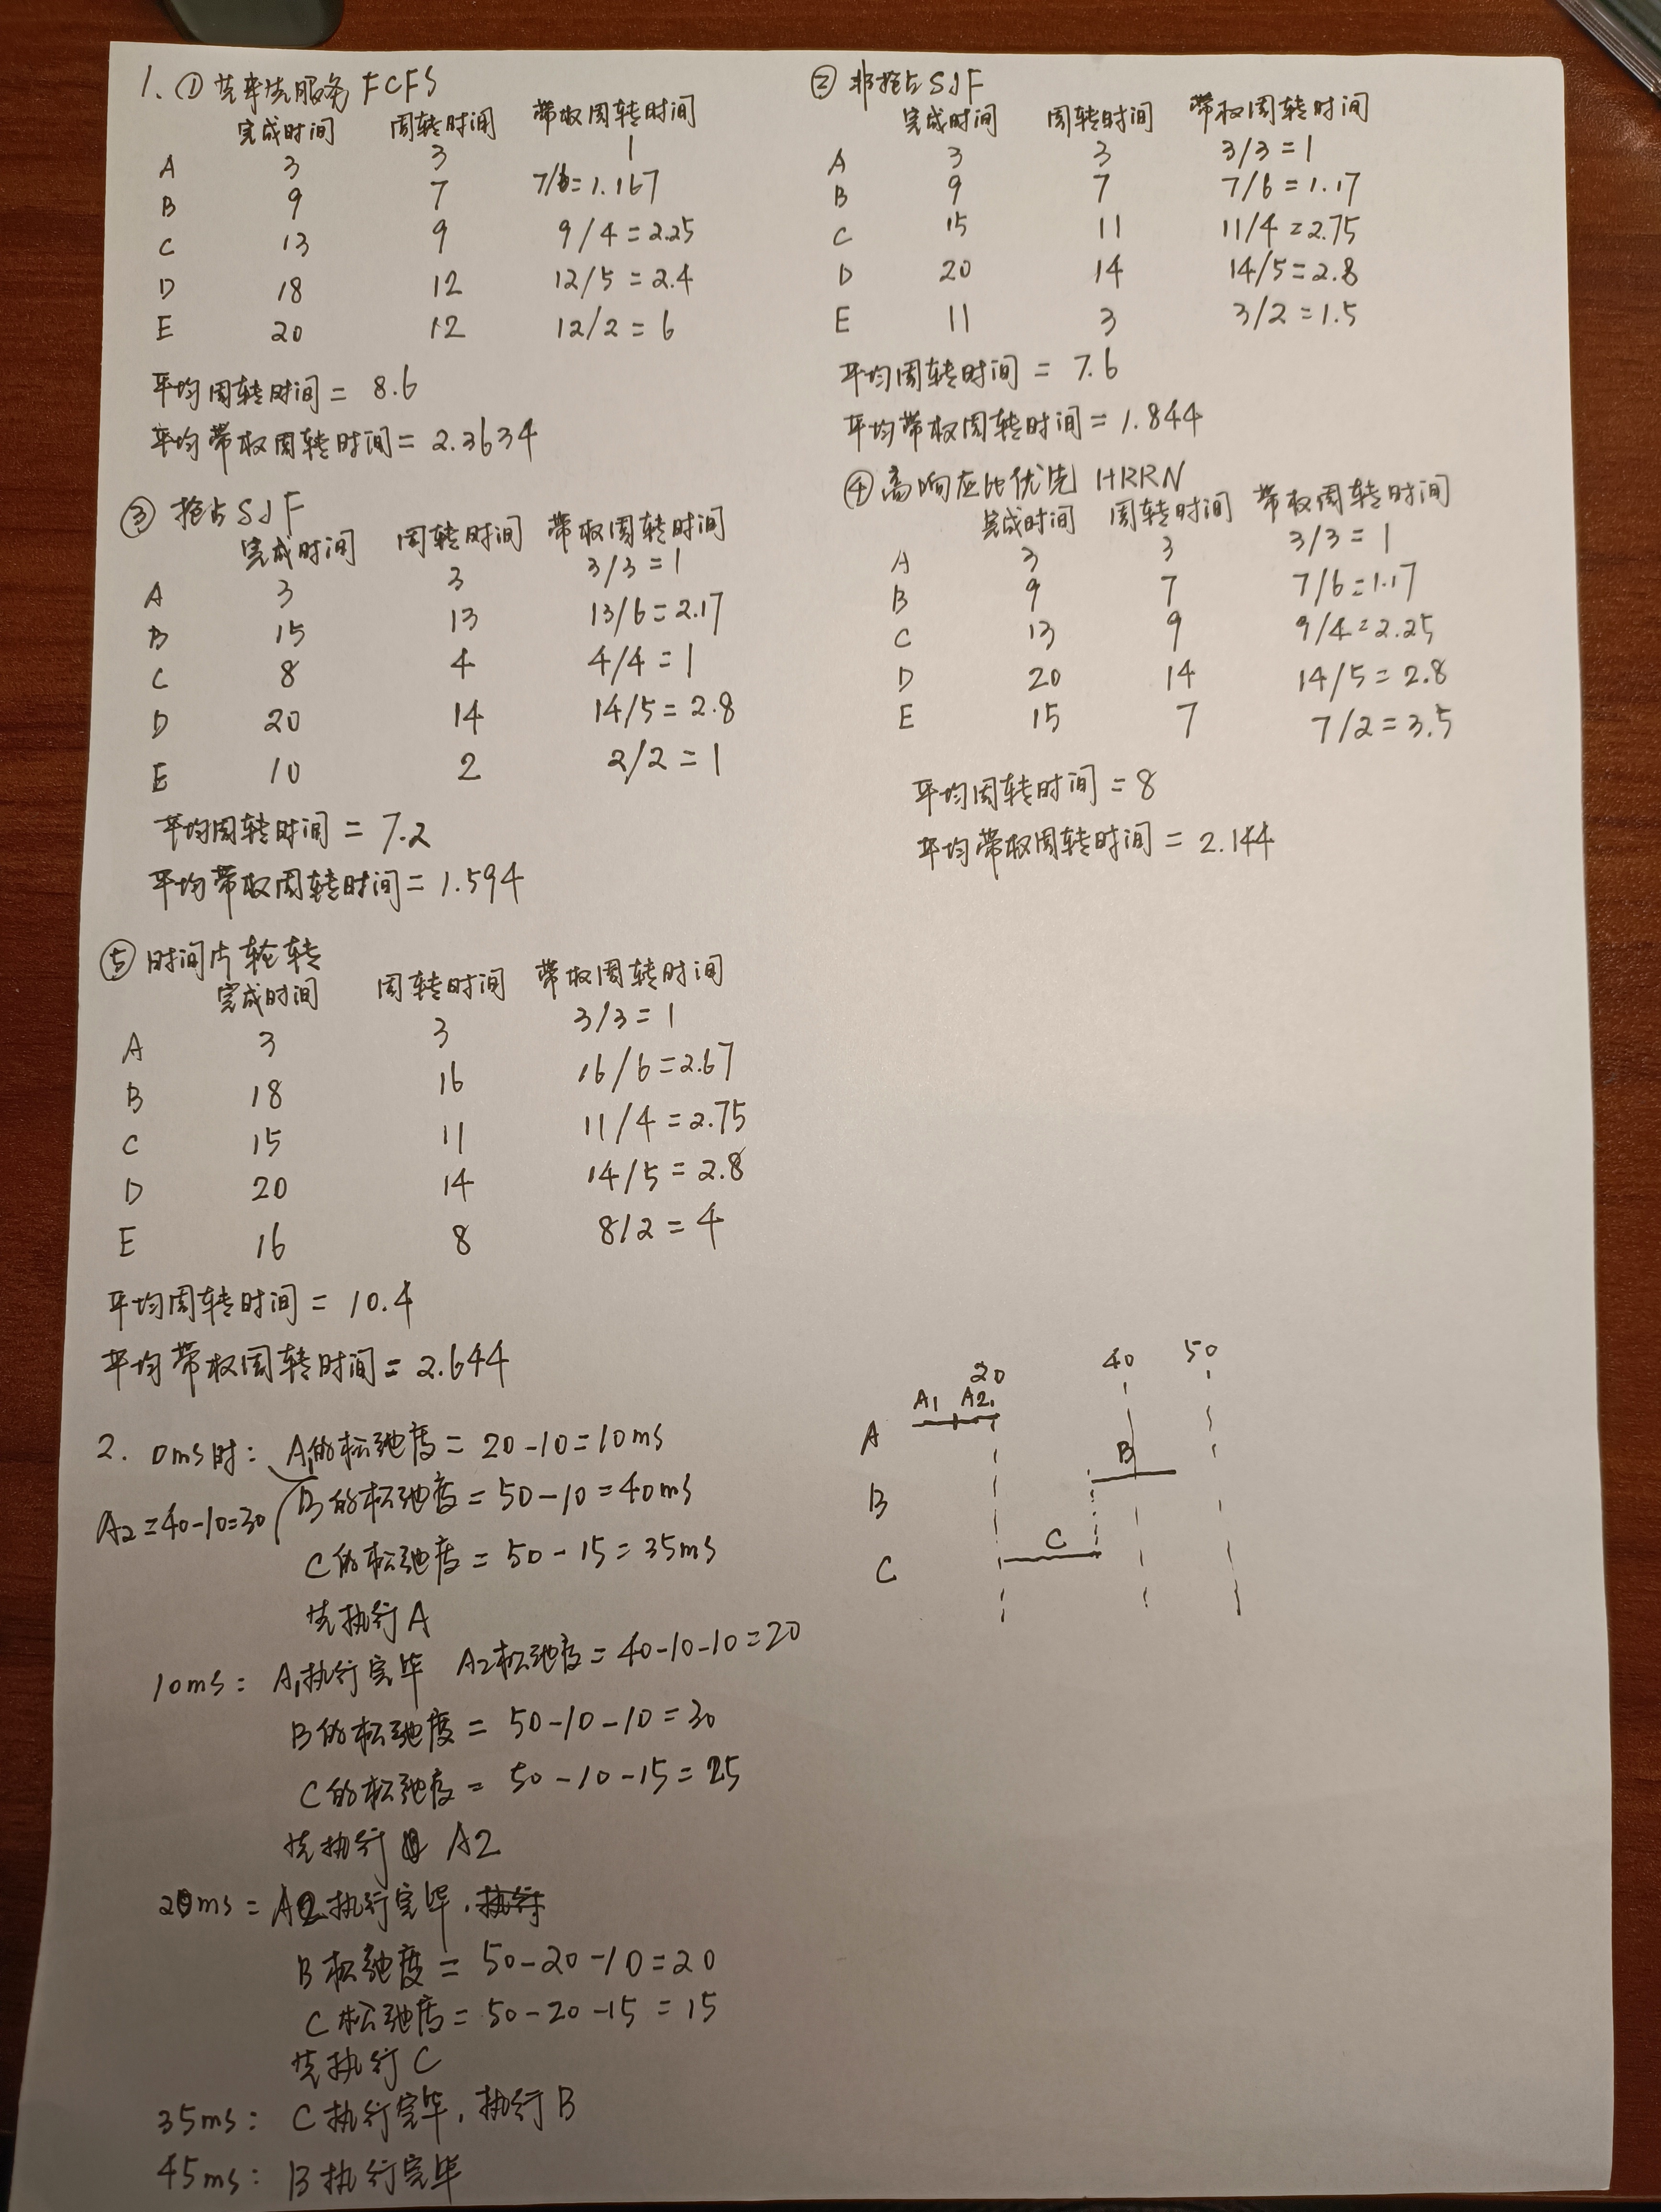 1. ① 先来先服务 FCFS
完成时间 周转时间 带权周转时间
A 3 3 1
B 9 7 7/6=1.167
C 13 9 9/4=2.25
D 18 12 12/5=2.4
E 20 12 12/2=6
平均周转时间= 8.6
平均带权周转时间= 2.3634
② 非抢占SJF
完成时间 周转时间 带权周转时间
A 3 3 3/3=1
B 9 7 7/6=1.17
C 15 11 11/4=2.75
D 20 14 14/5=2.8
E 11 3 3/2=1.5
平均周转时间= 7.6
平均带权周转时间=1.844
③ 抢占SJF
完成时间 周转时间 带权周转时间
A 3 3 3/3=1
B 15 13 13/6=2.17
C 8 4 4/4=1
D 20 14 14/5=2.8
E 10 2 2/2=1
平均周转时间= 7.2
平均带权周转时间=1.594
④高响应比优先 HRRN
完成时间 周转时间 带权周转时间
A 3 3 3/3=1
B 9 7 7/6=1.17
C 13 9 9/4=2.25
D 20 14 14/5=2.8
E 15 7 7/2=3.5
平均周转时间=8
平均带权周转时间= 2.144
⑤时间片轮转
完成时间 周转时间 带权周转时间
A 3 3 3/3=1
B 18 16 16/6=2.67
C 15 11 11/4=2.75
D 20 14 14/5=2.8
E 16 8 8/2=4
平均周转时间= 10.4
平均带权周转时间=2.644
2. 0ms时: A1的松弛度=20-10=10ms
A2=40-10=30
B的松弛度=50-10=40ms
C的松弛度=50-15=35ms
先执行A
10ms: A1执行完毕 A2松弛度=40-10-10=20
B的松弛度=50-10-10=30
C的松弛度=50-10-15=25
先执行 A2
20ms= A2执行完毕.执行
B松弛度=50-20-10=20
C松弛度=50-20-15=15
先执行C
35ms: C执行完毕,执行B
45ms: B执行完毕
20 40 50
A1 A2
A
B
B
C
C